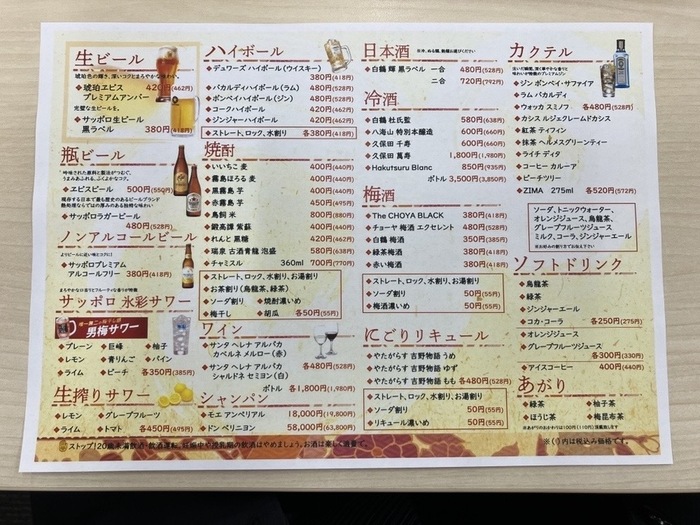 生ビール
琥珀色の輝き、深いコクとまろやかな味わい。
琥珀ヱビス 420円(462円)
プレミアムアンバー
完璧な生ビールを。
サッポロ生ビール
黒ラベル 380円(418円)
瓶ビール
ヱビスビール 500円(550円)
現存する日本で最も歴史のあるビールブランド
熱処理ならではの厚みのある独特な味わい
サッポロラガービール
480円(528円)
ノンアルコールビール
よりビールに近い味とコクに
サッポロプレミアム
アルコールフリー 380円(418円)
サッポロ 氷彩サワー
男梅サワー
プレーン 巨峰 柚子
レモン 青りんご パイン
ライム ピーチ 各350円(385円)
生搾りサワー
レモン グレープフルーツ
ライム トマト 各450円(495円)
ハイボール
デュワーズ ハイボール(ウイスキー)
380円(418円)
バカルディハイボール(ラム) 480円(528円)
ボンベイハイボール(ジン) 480円(528円)
コークハイボール 420円(462円)
ジンジャーハイボール 420円(462円)
ストレート、ロック、水割り 各380円(418円)
焼酎
いいちこ 麦 400円(440円)
霧島ほろる 麦 400円(440円)
黒霧島 芋 400円(440円)
赤霧島 芋 450円(495円)
鳥飼 米 800円(880円)
鍛高譚 紫蘇 400円(440円)
れんと 黒糖 420円(462円)
瑞泉 古酒青龍 泡盛 580円(638円)
チャミスル 360ml 700円(770円)
ストレート、ロック、水割り、お湯割り
お茶割り(烏龍茶、緑茶)
ソーダ割り 焼酎濃いめ
梅干し 胡瓜 各50円(55円)
ワイン
サンタ ヘレナ アルパカ
カベルネ メルロー(赤)
サンタ ヘレナ アルパカ 各480円(528円)
シャルドネ セミヨン(白)
ボトル 各1,800円(1,980円)
シャンパン
モエ アンペリアル 18,000円(19,800円)
ドン ペリニヨン 58,000円(63,800円)
日本酒
白鶴 輝 黒ラベル 一合 480円(528円)
二合 720円(792円)
冷酒
白鶴 杜氏鑑 580円(638円)
八海山 特別本醸造 600円(660円)
久保田 千寿 600円(660円)
久保田 萬寿 1,800円(1,980円)
Hakutsuru Blanc 850円(935円)
ボトル 3,500円(3,850円)
梅酒
The CHOYA BLACK 380円(418円)
チョーヤ 梅酒 エクセレント 480円(528円)
白鶴 梅酒 350円(385円)
緑茶梅酒 380円(418円)
赤い梅酒 380円(418円)
ストレート、ロック、水割り、お湯割り
ソーダ割り 50円(55円)
梅酒濃いめ 50円(55円)
にごりリキュール
やたがらす 吉野物語 うめ
やたがらす 吉野物語 ゆず
やたがらす 吉野物語 もも 各480円(528円)
ストレート、ロック、水割り、お湯割り
ソーダ割り 50円(55円)
リキュール濃いめ 50円(55円)
カクテル
ジン ボンベイ・サファイア
ラム バカルディ
ウォッカ スミノフ 各480円(528円)
カシス ルジェクレームドカシス
紅茶 ティフィン
抹茶 ヘルメスグリーンティー
ライチ ディタ
コーヒー カルーア
ピーチツリー
ZIMA 275ml 各520円(572円)
ソーダ、トニックウォーター、
オレンジジュース、烏龍茶、
グレープフルーツジュース
ミルク、コーラ、ジンジャーエール
※お好みの割り方でお伺えします
ソフトドリンク
烏龍茶
緑茶
ジンジャーエール
コカ・コーラ 各250円(275円)
オレンジジュース
グレープフルーツジュース
各300円(330円)
アイスコーヒー 400円(440円)
あがり
緑茶 柚子茶
ほうじ茶 梅昆布茶
※おあがりのおかわりは100円(110円)頂戴致します
※( )内は税込み価格です。
ストップ!20歳未満飲酒・飲酒運転。妊娠中や授乳期の飲酒はやめましょう。お酒は楽しく適量で。